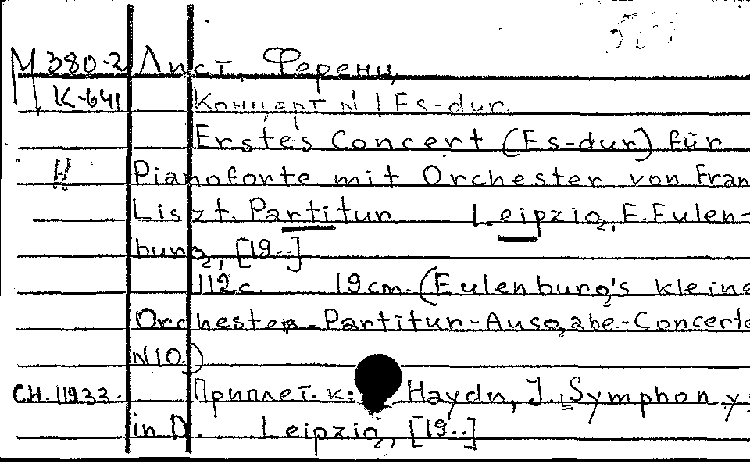 М 380-2 Лист, Ференц.
К-641 Концерт N 1 Es-dur.
Erstes Concert (Es-dur) für
Pianoforte mit Orchester von Fran
Liszt. Partitur Leipzig, E. Eulen-
burg, [19..]
112 с. 19 cm. (Eulenburg's kleine
Orchester-Partitur-Ausgabe-Concerte
N10.)
СН.11933. Приплет. к: Haydn, J. Symphony
in D. Leipzig, [19..]